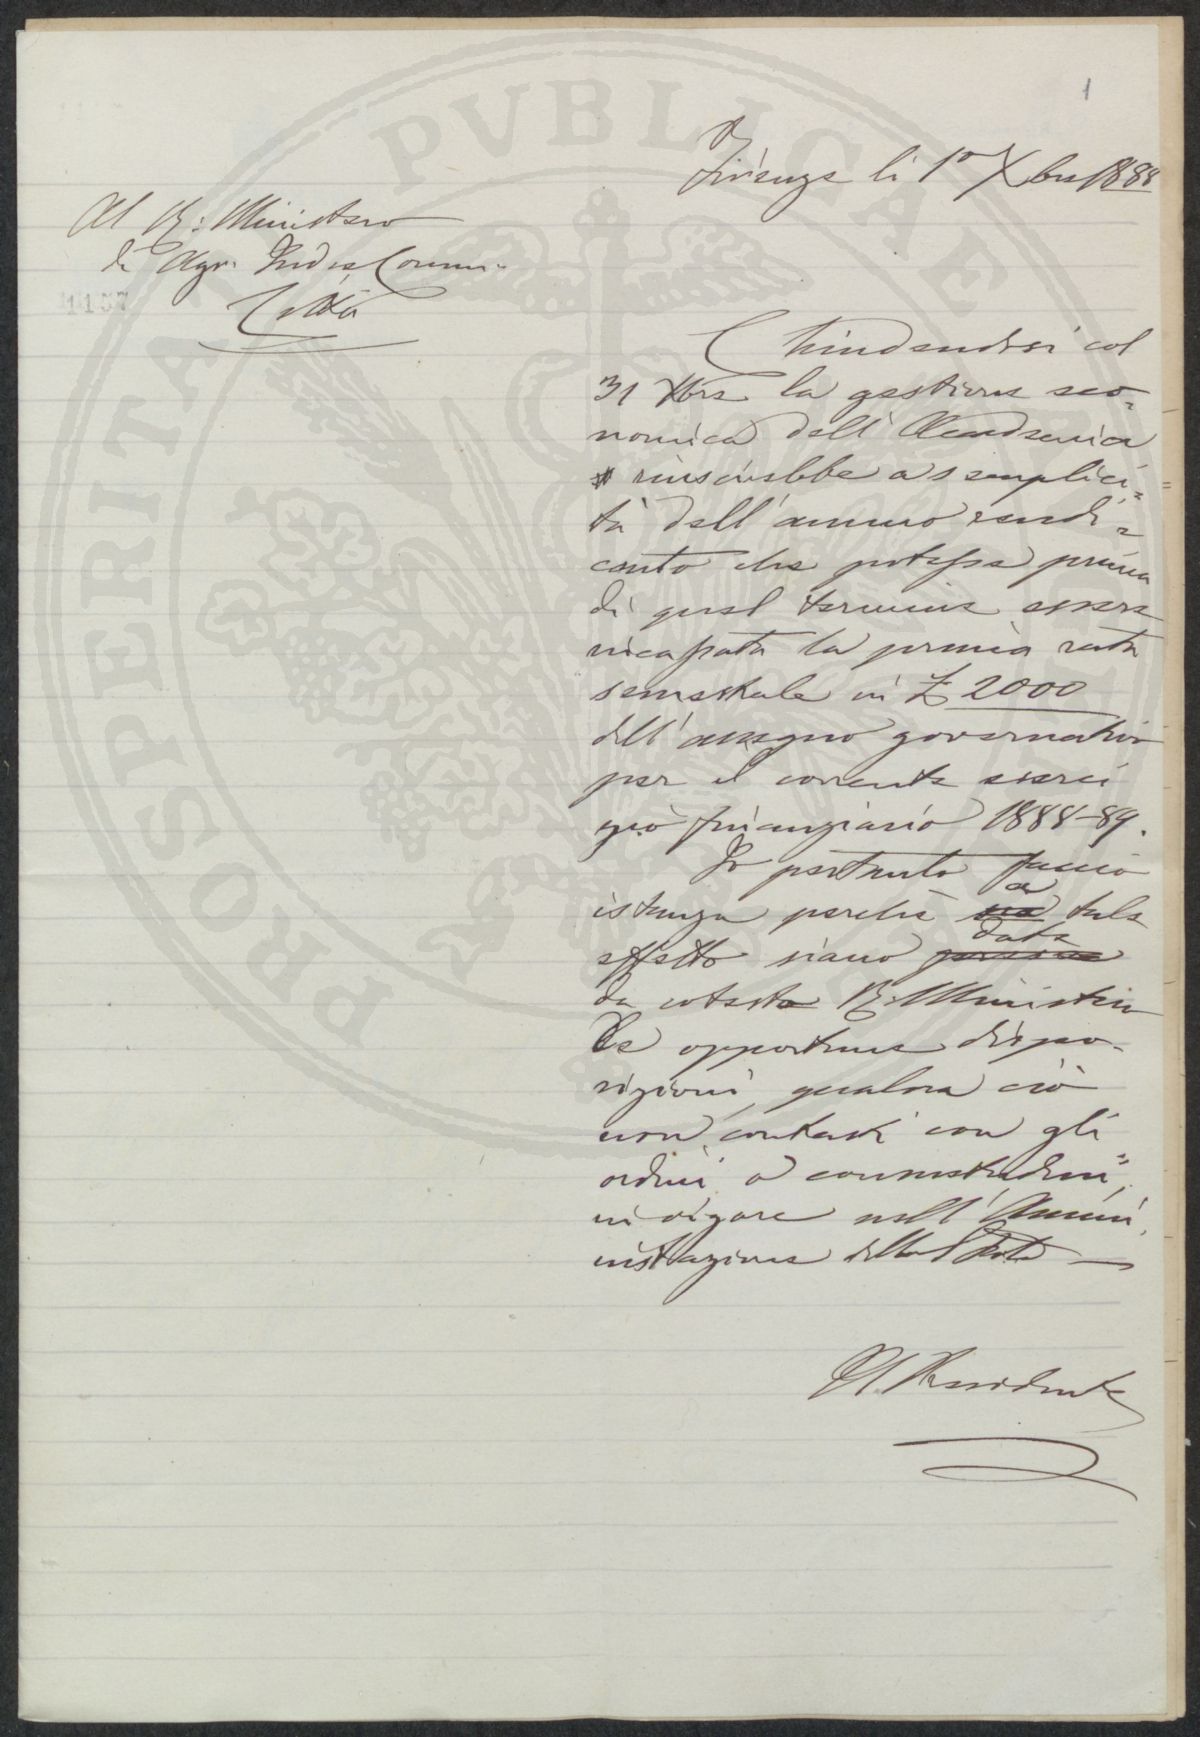 1
Firenze li 1° Xbre 1888
Al R: Ministero
di Agr. Ind. e Comm.
Città
1157
Chiudendosi col
31 Xbre la gestione eco-
nomica dell'Accademia
riuscirebbe a semplici-
tà dell'annuo rendi-
conto che potesse prima
di quel termine essere
incassata la prima rata
semestrale in £ 2000
dell'assegno governativo
per il corrente eserci
zio finanziario 1888-89.
Io pertanto faccio
istanza perchè a tale
effetto siano date
da cotesto R. Ministero
le opportune dispo-
sizioni, qualora ciò
non contrasti con gli
ordini o consuetudini
in vigore nell'Ammi
nistrazione dello Stato
Il Presidente
PROSPERITATI PVBLICAE